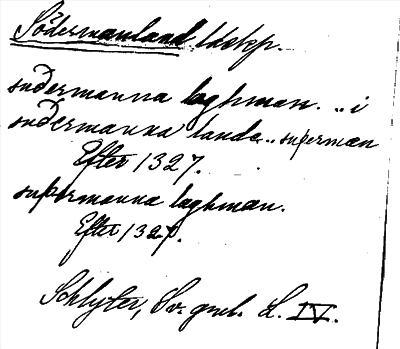 Södermanland, ldskp.
suðermanna laghman. .. i
suðermanna lande .. suþermæn
Efter 1327.
suþermanna laghman.
Efter 1327.
Schlyter, Sv. gml. L. IV.